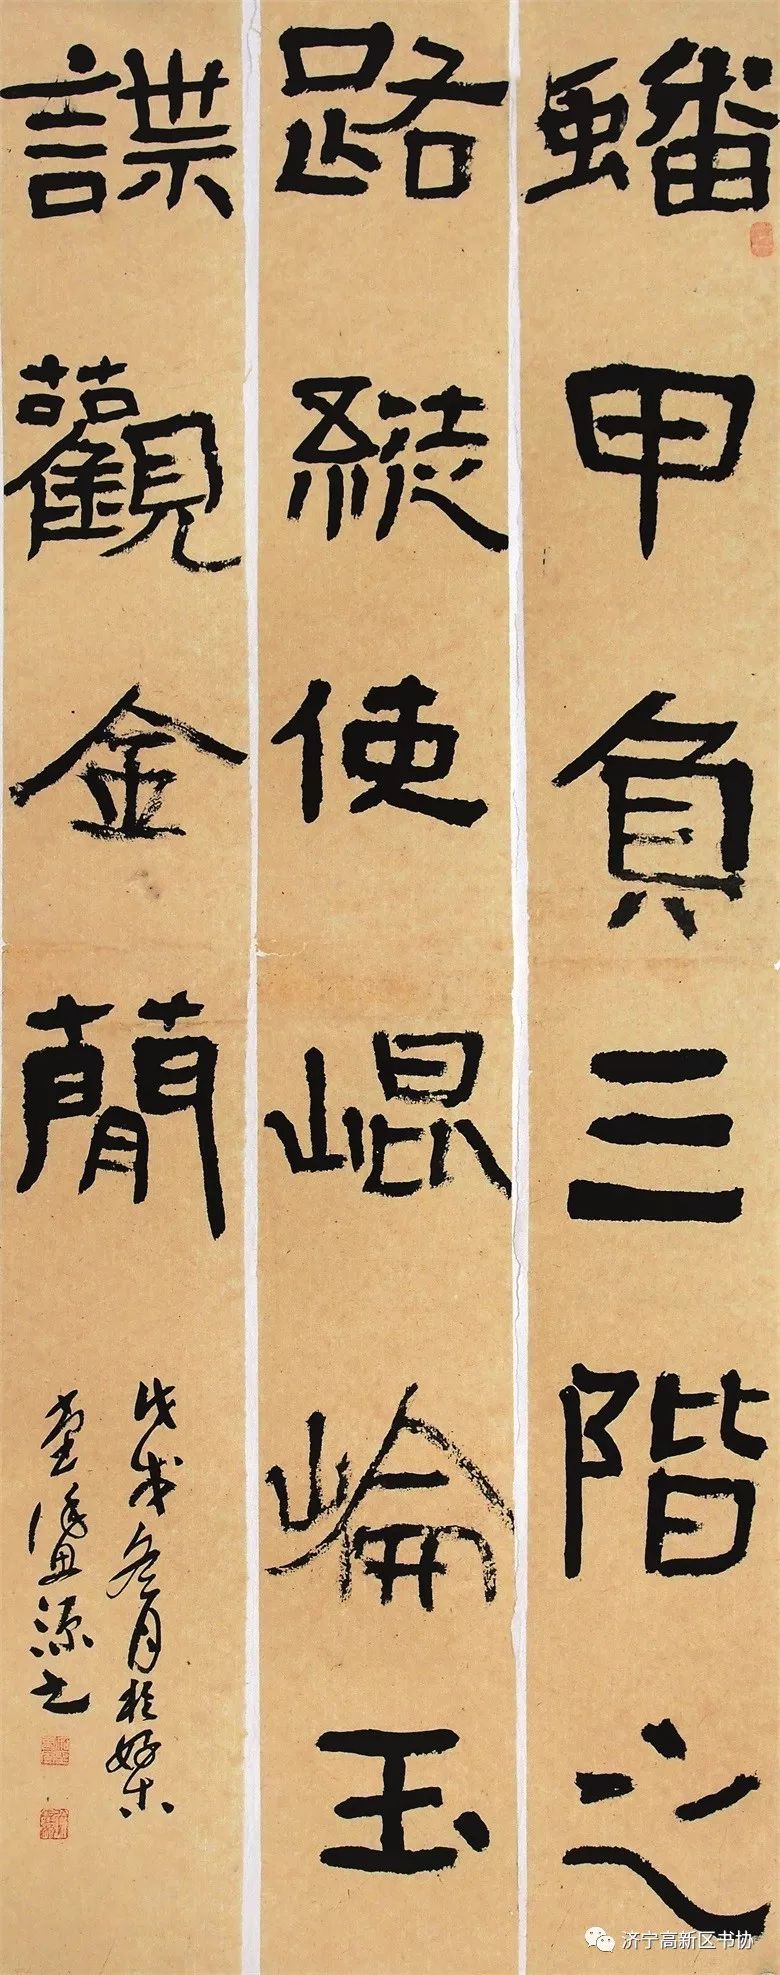 蟠甲負三階之
路縱使崐崘玉
諜觀金簡
戊戌冬月於好
堂 源书
济宁高新区书协